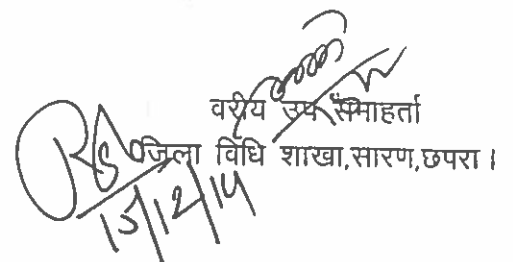 वरीय उप समाहर्ता
जिला विधि शाखा,सारण,छपरा ।
15/12/14